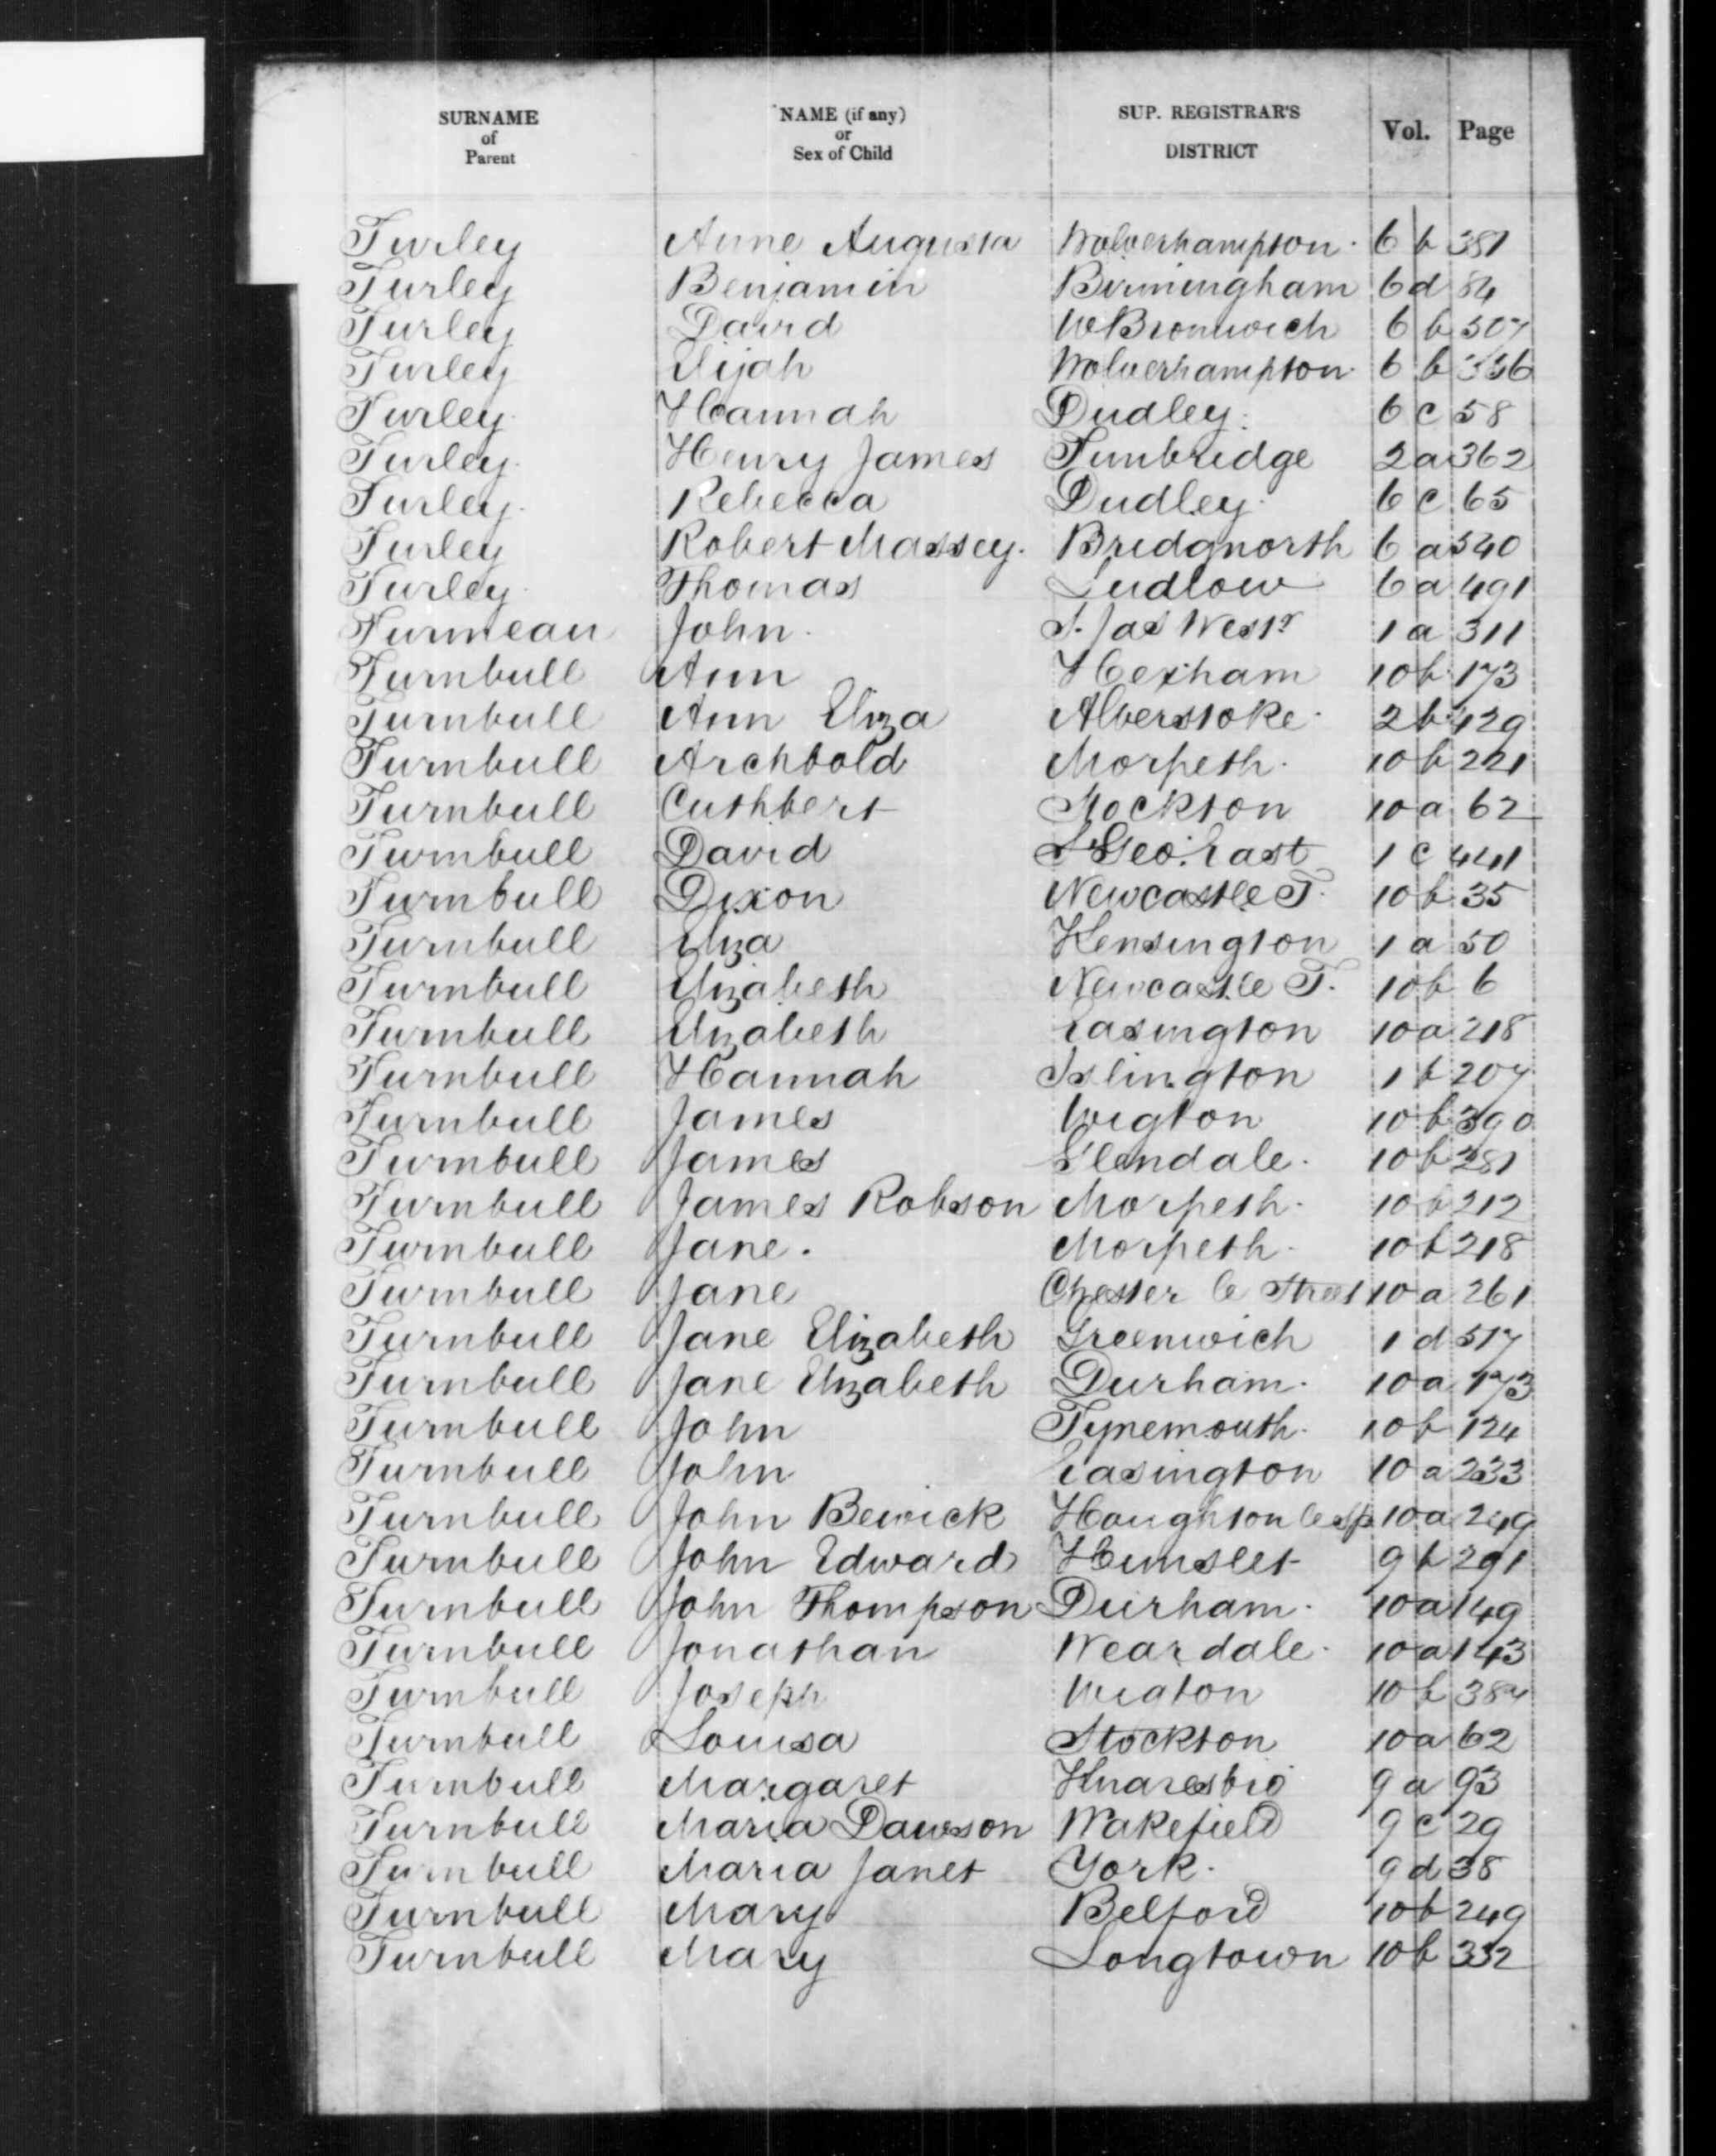 SURNAME of Parent NAME (if any) or Sex of Child SUP. REGISTRAR'S DISTRICT Vol. Page
Turley Anne Augusta Wolverhampton. 6 b 381
Turley Benjamin Birmingham 6 d 84
Turley David W Bromwich 6 b 507
Turley Elijah Wolverhampton. 6 b 336
Turley. Hannah Dudley. 6 c 58
Turley. Henry James Tunbridge 2 a 362
Turley. Rebecca Dudley. 6 c 65
Turley Robert Massey. Bridgnorth 6 a 540
Turley. Thomas Ludlow 6 a 491
Turmeau John. S. Jas Westr 1 a 311
Turnbull Ann Hexham 10 b 173
Turnbull Ann Eliza Alverstoke. 2 b 429
Turnbull Archbold Morpeth. 10 b 221
Turnbull Cuthbert Stockton 10 a 62
Turnbull David St Geo. East 1 c 441
Turnbull Dixon Newcastle T. 10 b 35
Turnbull Eliza Kensington 1 a 50
Turnbull Elizabeth Newcastle T. 10 b 6
Turnbull Elizabeth Easington 10 a 218
Turnbull Hannah Islington 1 b 207
Turnbull James Wigton 10 b 390
Turnbull James Glendale. 10 b 281
Turnbull James Robson Morpeth. 10 b 212
Turnbull Jane. Morpeth. 10 b 218
Turnbull Jane Chester le Street 10 a 261
Turnbull Jane Elizabeth Greenwich 1 d 517
Turnbull Jane Elizabeth Durham. 10 a 173
Turnbull John Tynemouth. 10 b 124
Turnbull John Easington 10 a 233
Turnbull John Bewick Houghton le Sp 10 a 249
Turnbull John Edward Hunslet 9 b 291
Turnbull John Thompson Durham. 10 a 149
Turnbull Jonathan Weardale. 10 a 143
Turnbull Joseph Wigton 10 b 384
Turnbull Louisa Stockton 10 a 62
Turnbull Margaret Knaresbro 9 a 93
Turnbull Maria Dawson Wakefield 9 c 29
Turnbull Maria Janet York. 9 d 38
Turnbull Mary Belford 10 b 249
Turnbull Mary Longtown 10 b 332